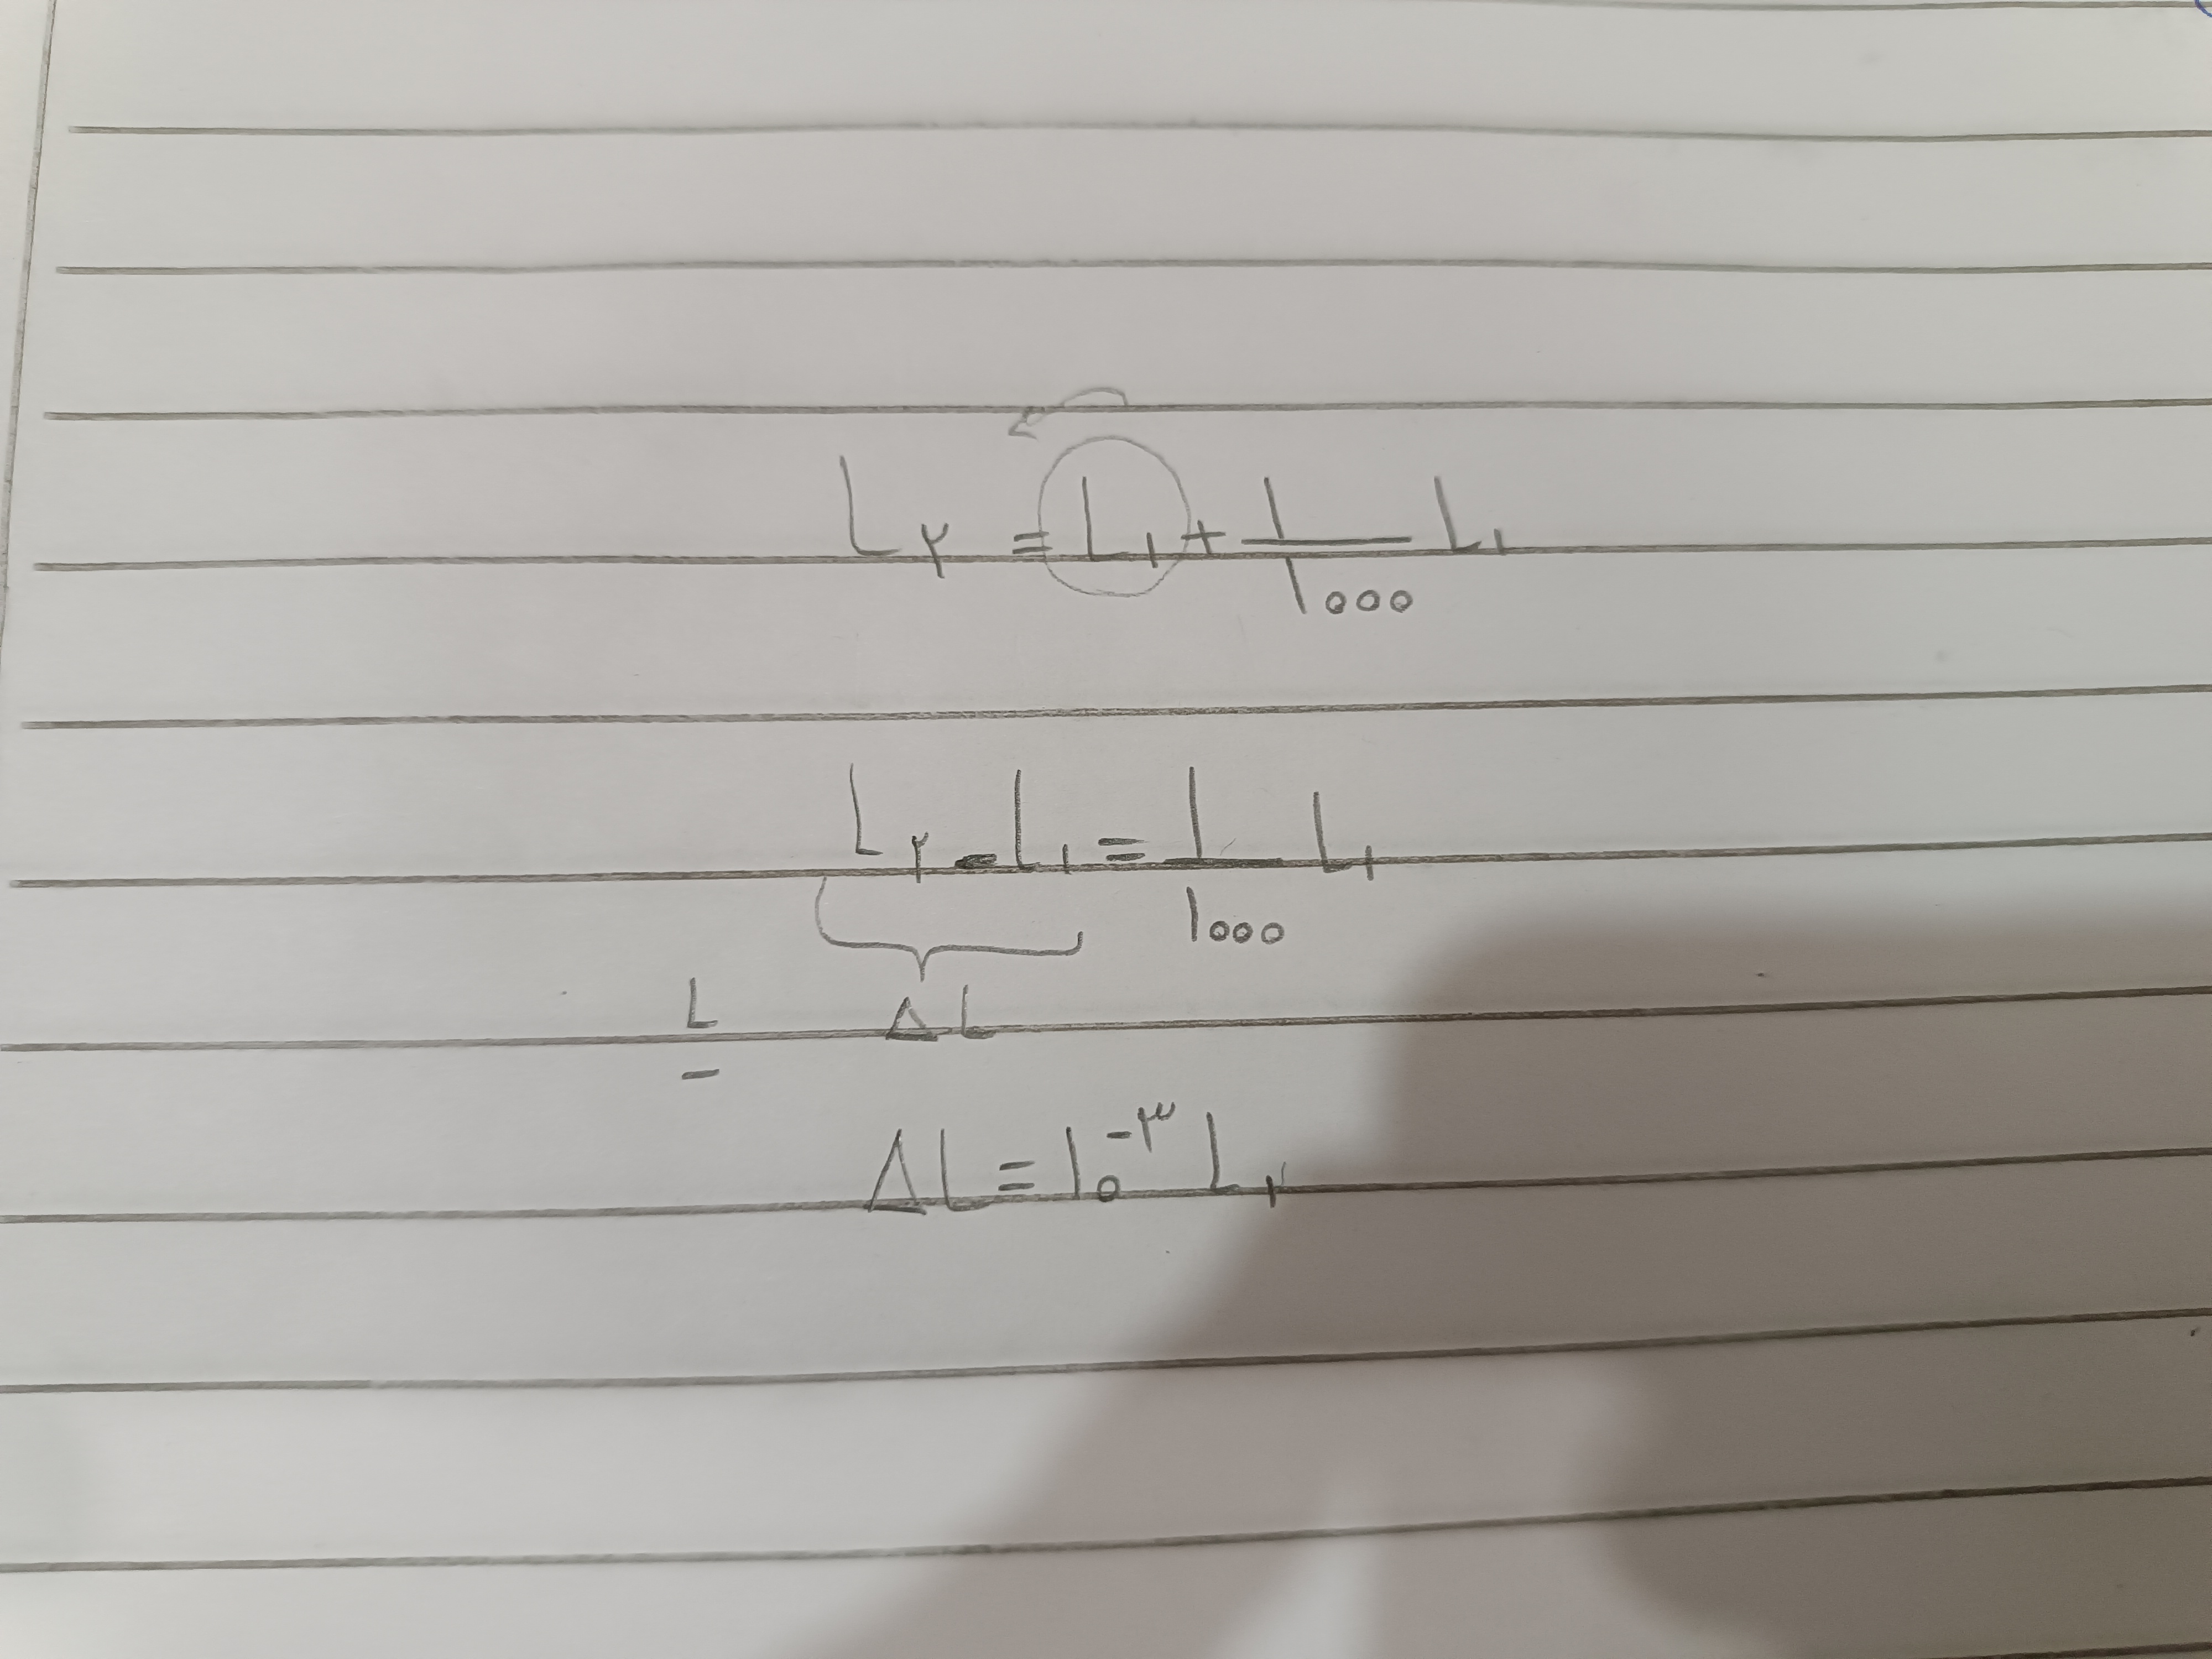 L۲ = L۱ + ۱/۱۰۰۰ L۱
L۲ - L۱ = ۱/۱۰۰۰ L۱
L ΔL
-
ΔL = ۱۰^-۳ L۱